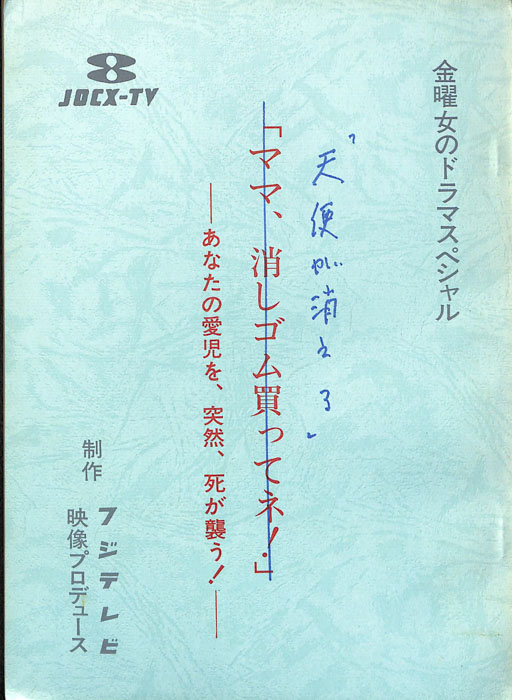 8
JOCX-TV
金曜女のドラマスペシャル
「天使が消える」
「ママ、消しゴム買ってネ!」
——あなたの愛児を、突然、死が襲う!——
制作 フジテレビ
映像プロデュース